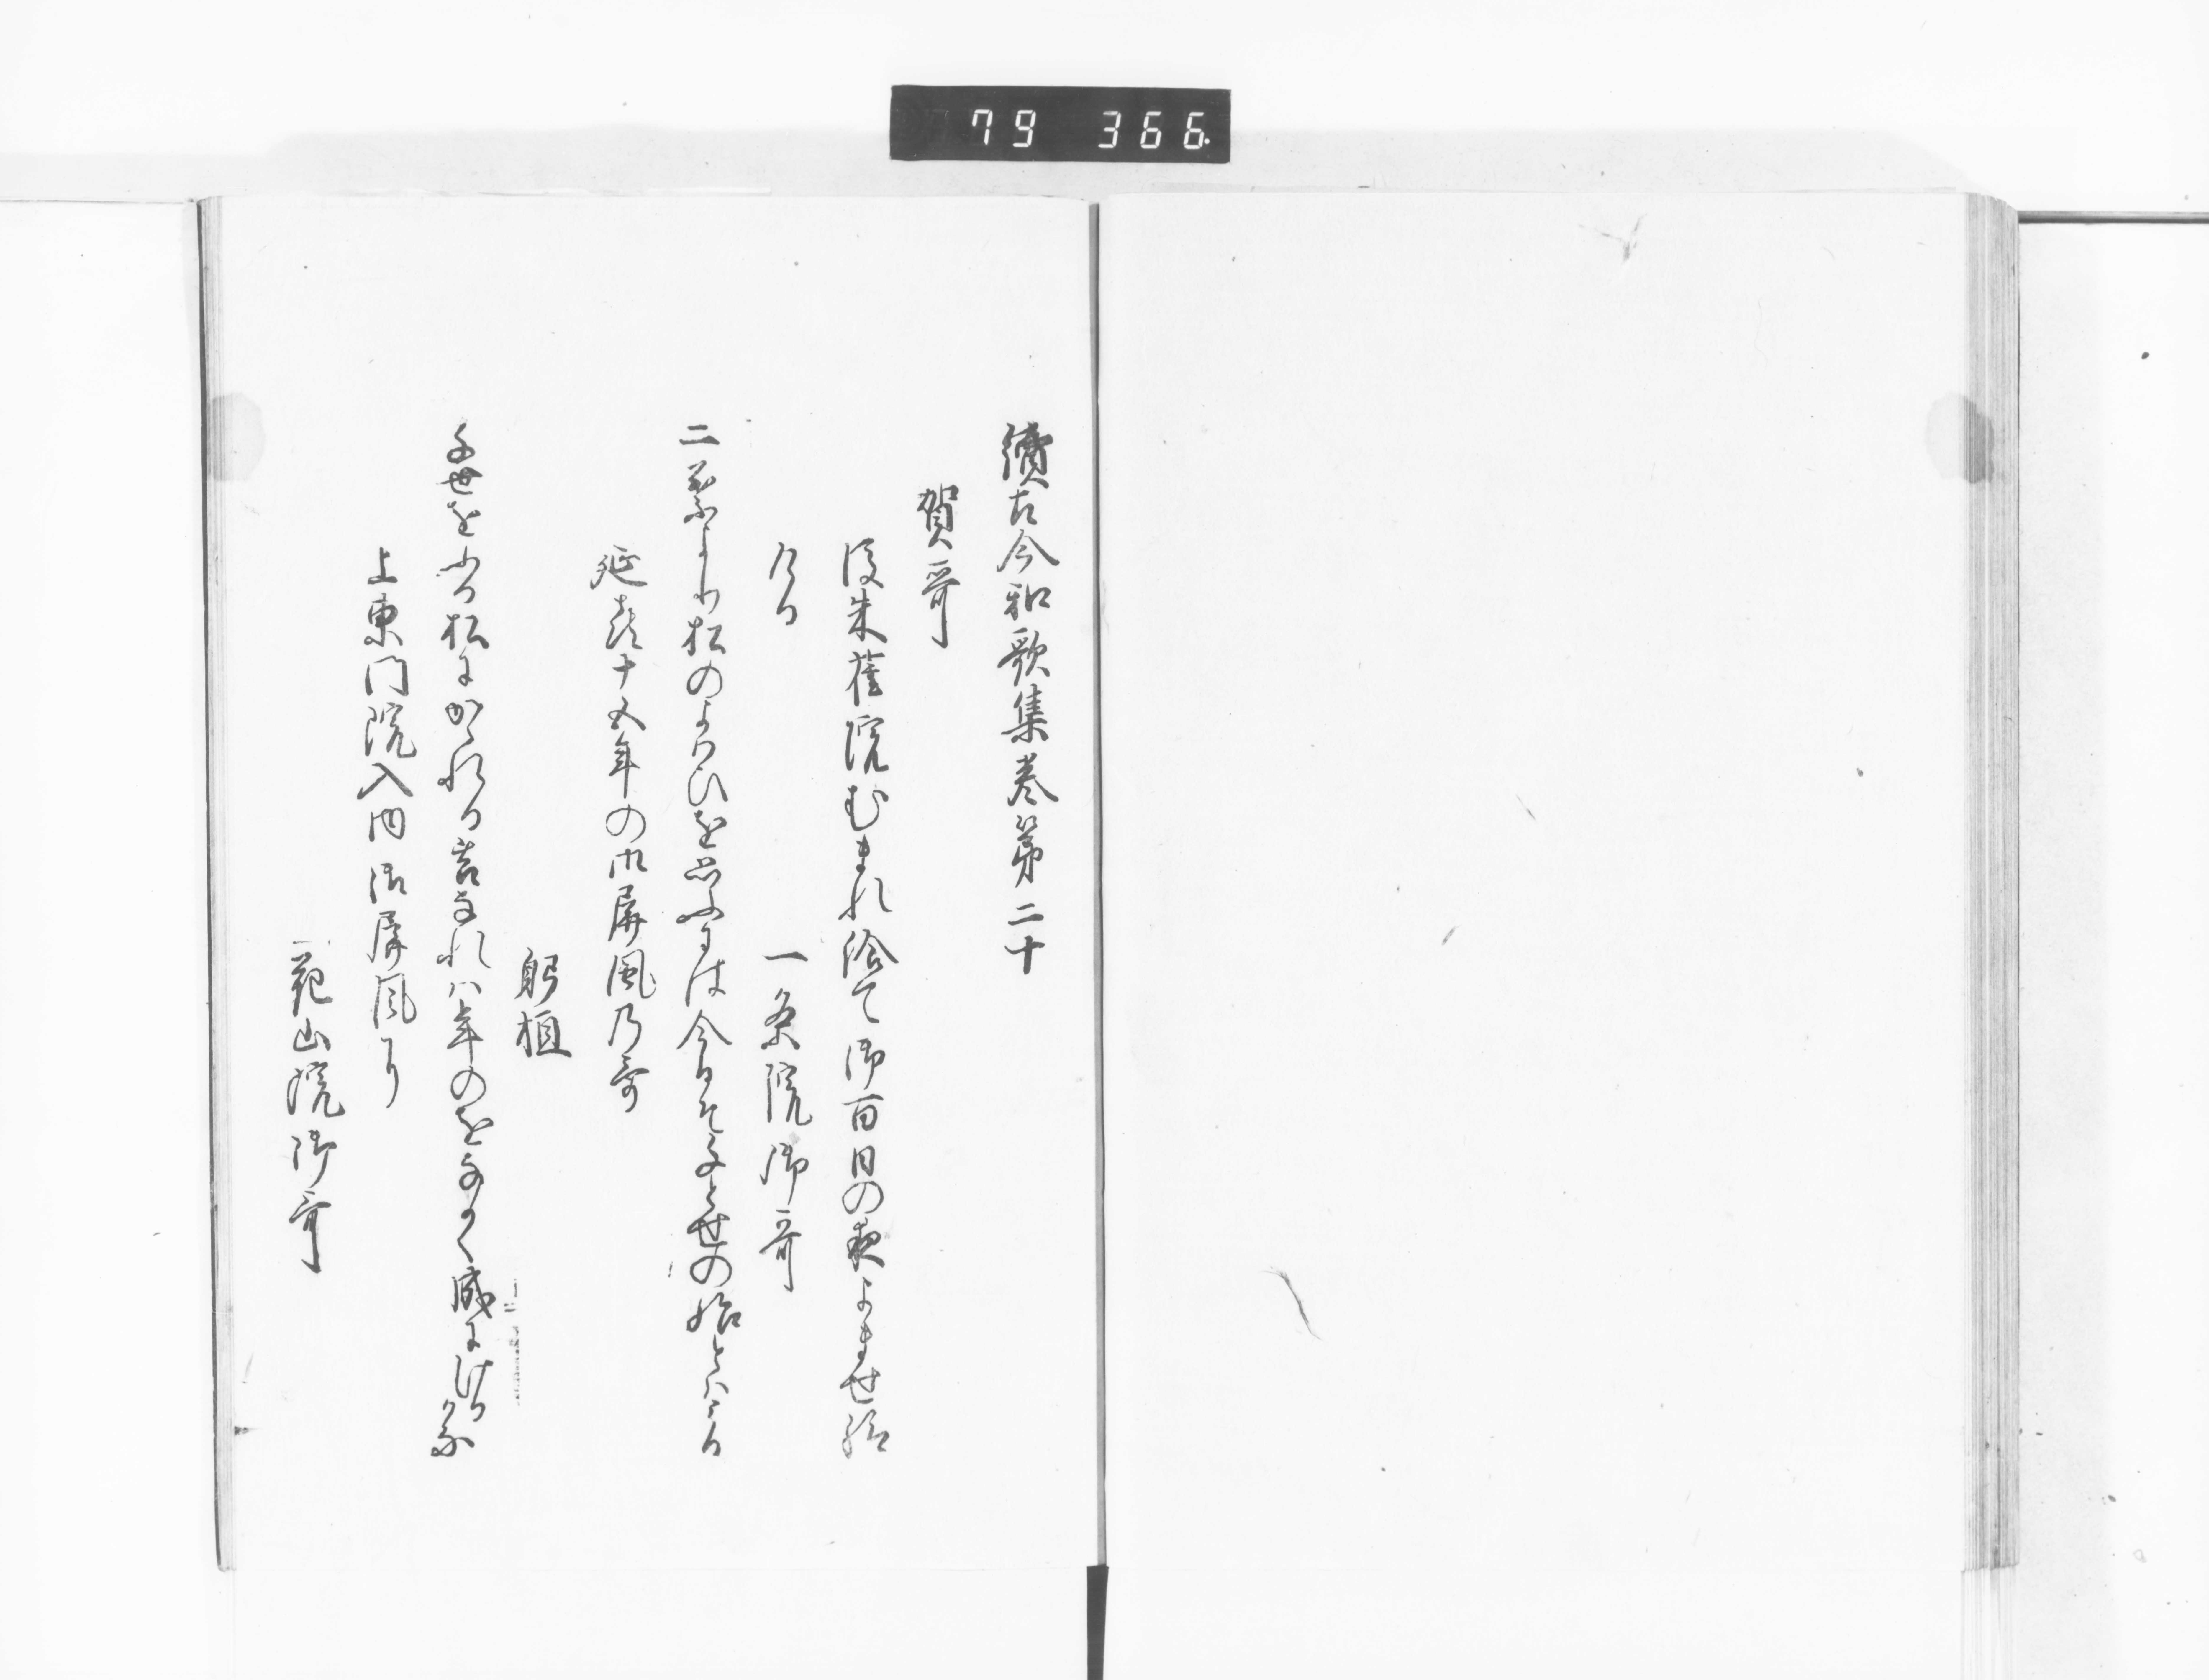 79 366.
續古今和歌集巻第二十
賀哥
後朱雀院むまれ給て御百日の夜よませ給
ける
一条院御哥
二葉より松のよはひを思ふには今日そ千とせの始とはみる
延喜十五年の御屏風乃哥
躬恒
千世をふる松にかゝれる苔なれは年のをなかく成にけるかな
上東門院入内御屏風に
花山院御哥